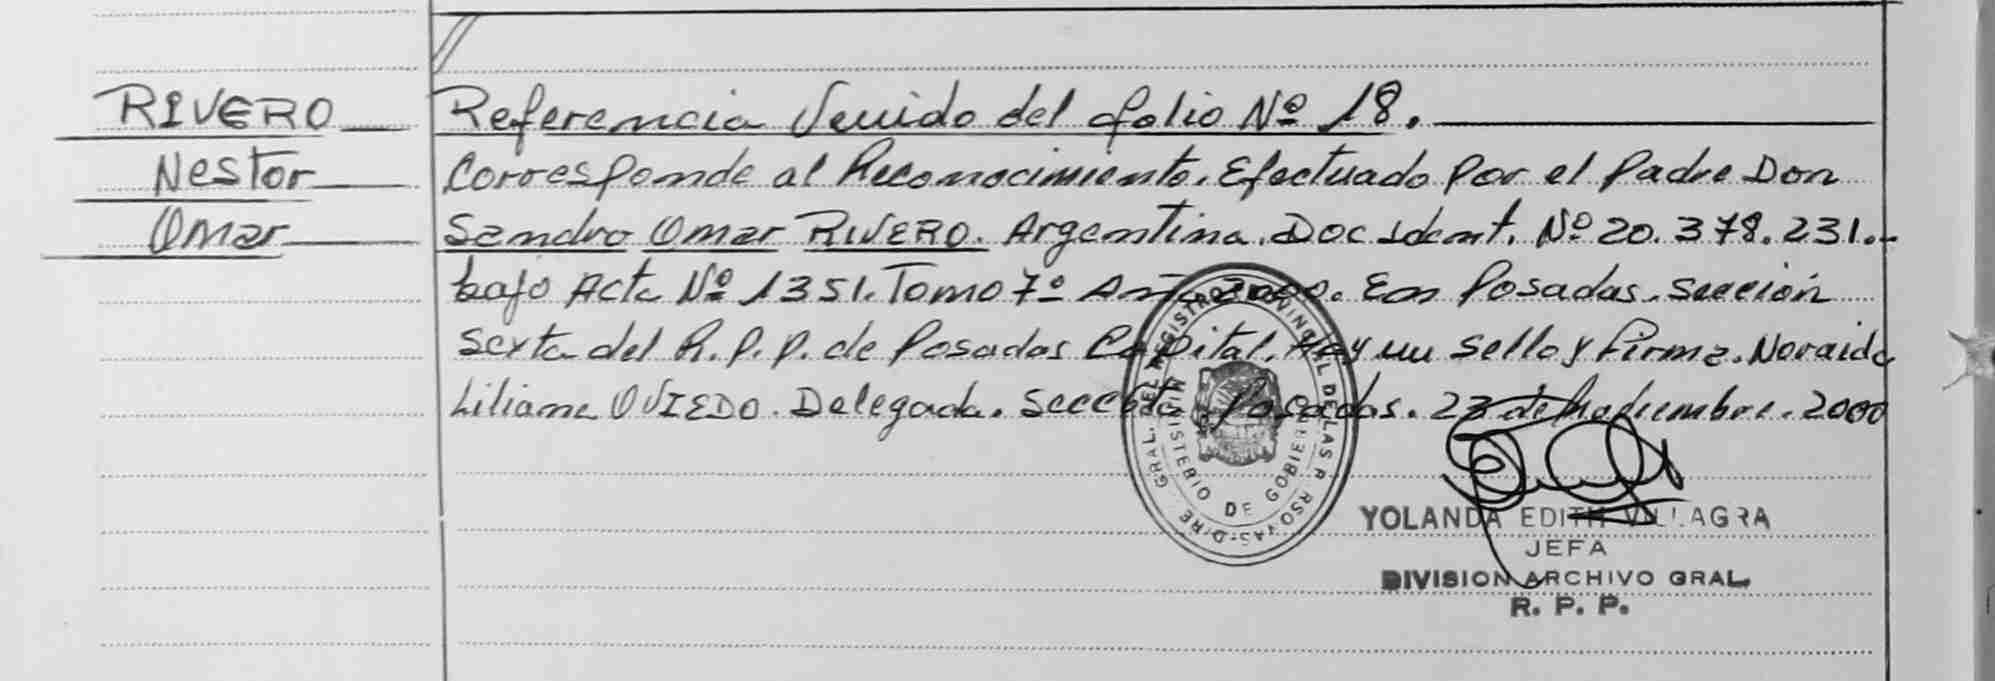 RIVERO
Nestor
Omar
Referencia Venido del folio Nº 18.
Corresponde al Reconocimiento. Efectuado por el Padre Don
Sandro Omar RIVERO. Argentina. Doc Ident. Nº 20.378.231.-
bajo Acta Nº 1351. Tomo 7º Año 2000. En Posadas. sección
sexta del R.P.P. de Posadas Capital. Hay un sello y firma. Noraida
Liliana OVIEDO. Delegada. Secc 6ta Posadas. 23 de Noviembre. 2000
DIRE GRAL. DEL REGISTRO PROVINCIAL DE LAS PERSONAS
MINISTERIO DE GOBIERNO
YOLANDA EDITH VILLAGRA
JEFA
DIVISION ARCHIVO GRAL.
R. P. P.